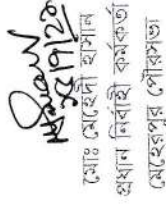 মোঃ মেহেদী হাসান
প্রধান নির্বাহী কর্মকর্তা
মেহেরপুর পৌরসভা